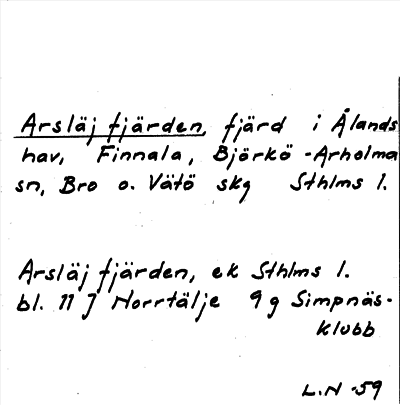 Arsläjfjärden, fjärd i Ålands
hav, Finnala, Björkö-Arholma
sn, Bro o. Vätö skg Sthlms l.
Arsläjfjärden, ek Sthlms l.
bl. 11 J Norrtälje 9 g Simpnäs-
klubb
L.N -59